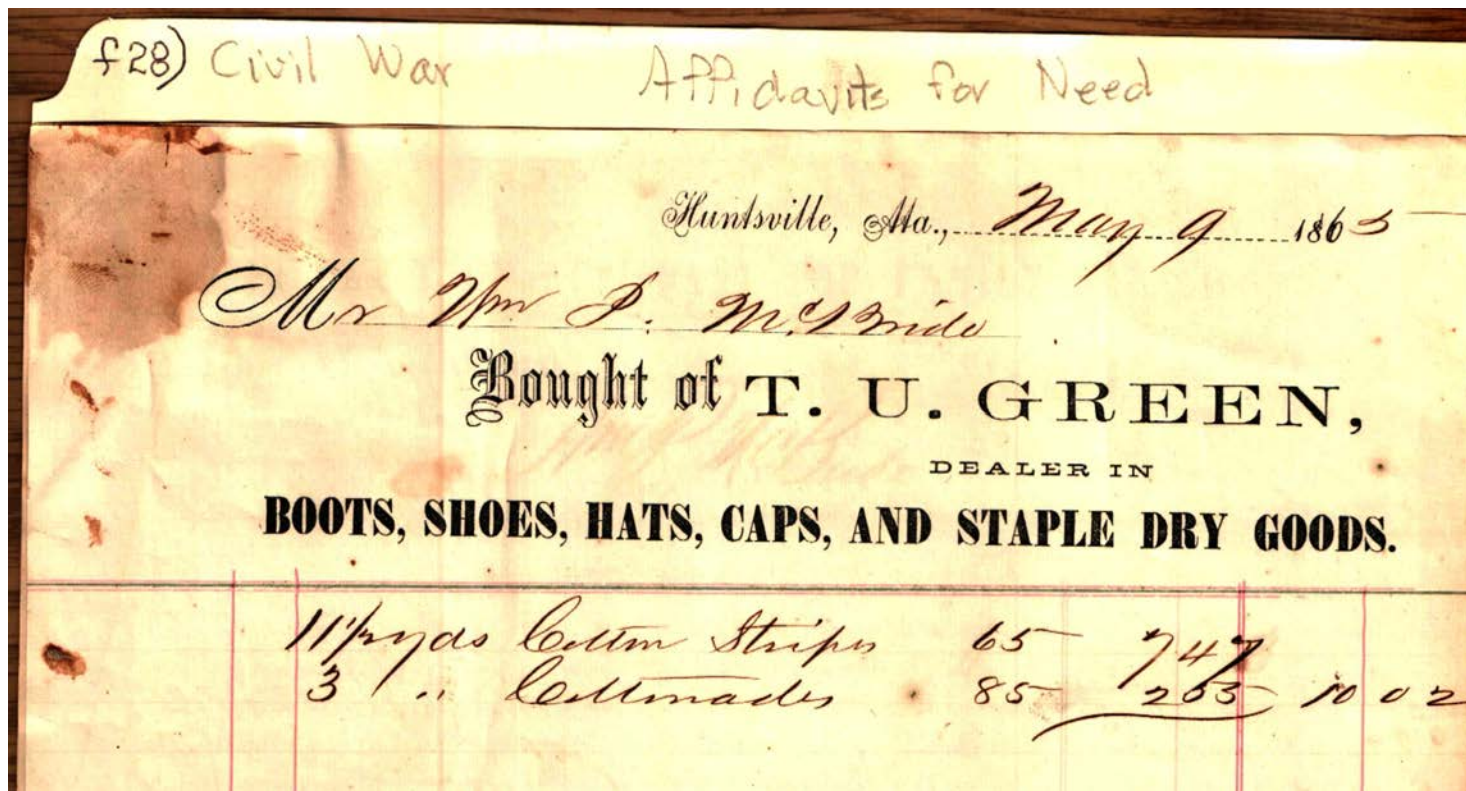 f28) Civil War Affidavits for Need
Huntsville, Ala., May 9 1865
Mr Wm P. McBride
Bought of T. U. GREEN,
DEALER IN
BOOTS, SHOES, HATS, CAPS, AND STAPLE DRY GOODS.
11½ yds Cotton Stripes 65 747
3 " Cottonades 85 255 10 02